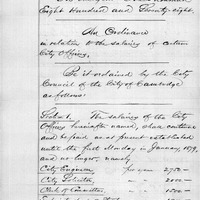 Eight Hundred and Seventy-eight.
An Ordinance
in relation to the salaries of certain
City Officers.
Be it ordained by the City
Council of the City of Cambridge
as follows:
Section 1. The salaries of the City
Officers hereinafter named, shall continue
and be paid as at present established
until the first Monday in January, 1879,
and no longer, namely
City Engineer per year 2750—
City Solicitor " 2000—
Clerk of Committees " 1500—